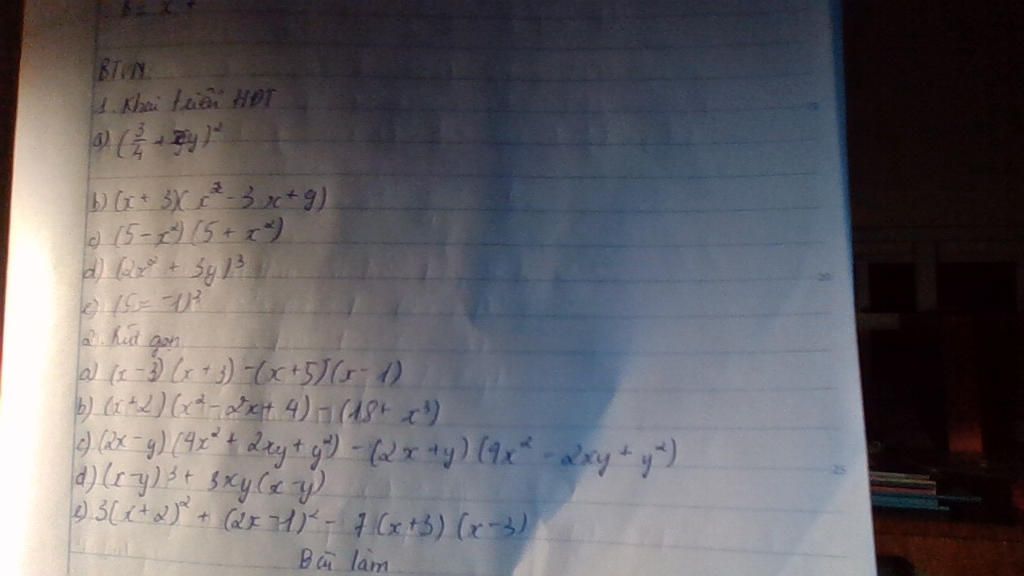 B = x +
BTVN
1. Khai triển HĐT
a) (3/4 + y)²
b) (x + 3)(x² - 3x + 9)
c) (5 - x²)(5 + x²)
d) (2x² + 3y)³
e) (5 - 1)³
2. Rút gọn
a) (x - 3)(x + 3) - (x + 5)(x - 1)
b) (x + 2)(x² - 2x + 4) - (18 + x³)
c) (2x - y)(4x² + 2xy + y²) - (2x + y)(4x² - 2xy + y²)
d) (x - y)³ + 3xy(x - y)
e) 3(x + 2)² + (2x - 1)² - 7(x + 3)(x - 3)
Bài làm